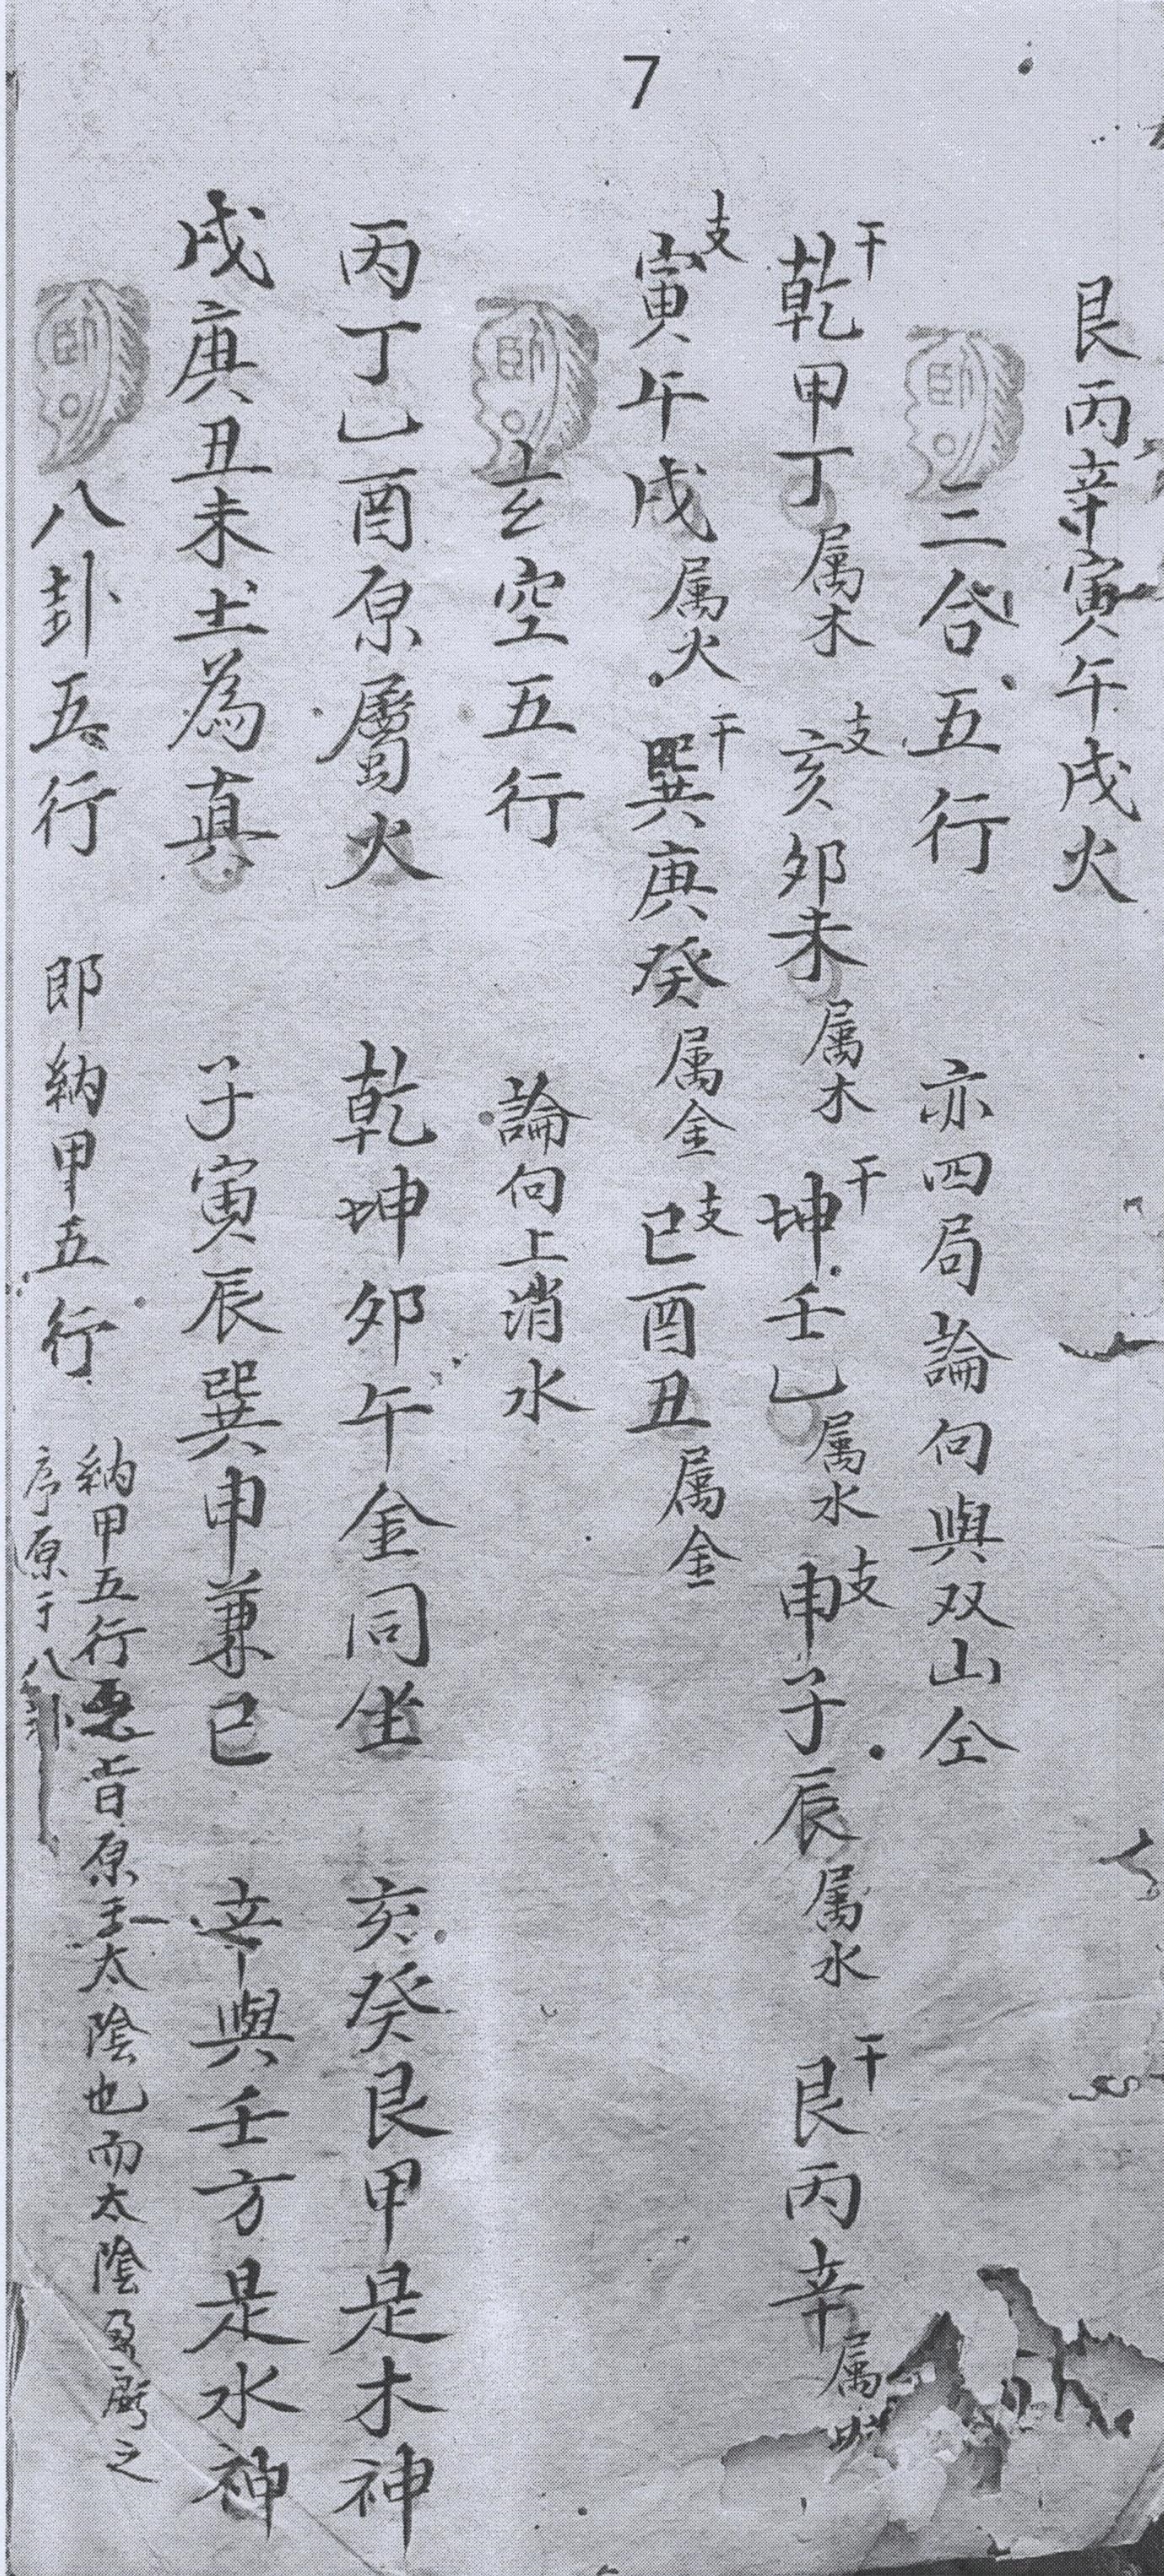 7
艮丙辛寅午戌火
三合五行 亦四局論向與双山仝
干乾甲丁属木 支亥卯未属木 干坤壬乙属水 支申子辰属水 干艮丙辛属
支寅午戌属火 干巽庚癸属金 支巳酉丑属金
玄空五行 論向上消水
丙丁乙酉原屬火 乾坤卯午金同坐 亥癸艮甲是木神
戌庚丑未土為真 子寅辰巽申兼巳 辛與壬方是水神
八卦五行 即納甲五行 納甲五行悉皆原主太陰也而太陰之
序原于八卦